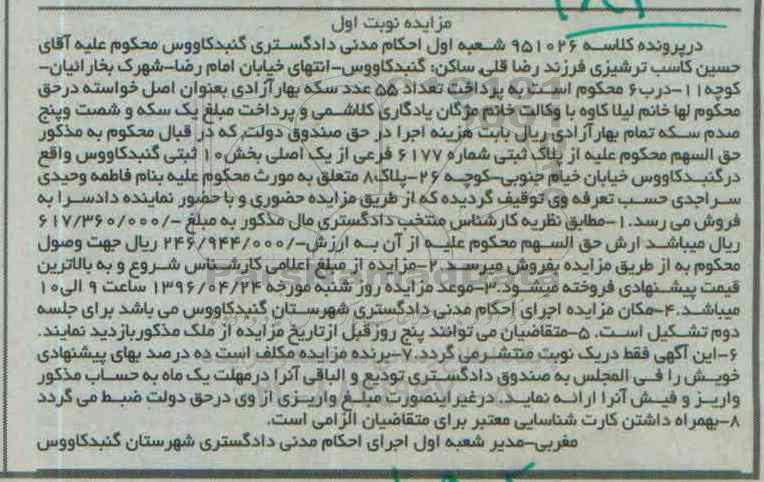 مزایده نوبت اول
درپرونده کلاسه ۹۵۱۰۲۶ شعبه اول احکام مدنی دادگستری گنبدکاووس محکوم علیه آقای
حسین کاسب ترشیزی فرزند رضا قلی ساکن: گنبدکاووس-انتهای خیابان امام رضا-شهرک بخارائیان-
کوچه۱۱-درب۶ محکوم است به پرداخت تعداد ۵۵ عدد سکه بهارآزادی بعنوان اصل خواسته درحق
محکوم لها خانم لیلا کاوه با وکالت خانم مژگان یادگاری کلاشمی و پرداخت مبلغ یک سکه و شصت وپنج
صدم سکه تمام بهارآزادی ریال بابت هزینه اجرا در حق صندوق دولت که در قبال محکوم به مذکور
حق السهم محکوم علیه از پلاک ثبتی شماره ۶۱۷۷ فرعی از یک اصلی بخش۱۰ ثبتی گنبدکاووس واقع
درگنبدکاووس خیابان خیام جنوبی-کوچه ۲۶-پلاک۸ متعلق به مورث محکوم علیه بنام فاطمه وحیدی
سراجدی حسب تعرفه وی توقیف گردیده که از طریق مزایده حضوری و با حضور نماینده دادسرا به
فروش می رسد.۱-مطابق نظریه کارشناس منتخب دادگستری مال مذکور به مبلغ -/۶۱۷/۳۶۰/۰۰۰
ریال میباشد ارش حق السهم محکوم علیه از آن به ارزش-/۲۴۶/۹۴۴/۰۰۰ ریال جهت وصول
محکوم به از طریق مزایده بفروش میرسد .۲-مزایده از مبلغ اعلامی کارشناس شروع و به بالاترین
قیمت پیشنهادی فروخته میشود.۳-موعد مزایده روز شنبه مورخه ۱۳۹۶/۰۴/۲۴ ساعت ۹ الی۱۰
میباشد.۴-مکان مزایده اجرای احکام مدنی دادگستری شهرستان گنبدکاووس می باشد برای جلسه
دوم تشکیل است. ۵-متقاضیان می توانند پنج روزقبل ازتاریخ مزایده از ملک مذکوربازدید نمایند.
۶-این آگهی فقط دریک نوبت منتشرمی گردد.۷-برنده مزایده مکلف است ده درصد بهای پیشنهادی
خویش را فی المجلس به صندوق دادگستری تودیع و الباقی آنرا درمهلت یک ماه به حساب مذکور
واریز و فیش آنرا ارائه نماید. درغیر اینصورت مبلغ واریزی از وی درحق دولت ضبط می گردد
۸-بهمراه داشتن کارت شناسایی معتبر برای متقاضیان الزامی است.
مغربی-مدیر شعبه اول اجرای احکام مدنی دادگستری شهرستان گنبدکاووس